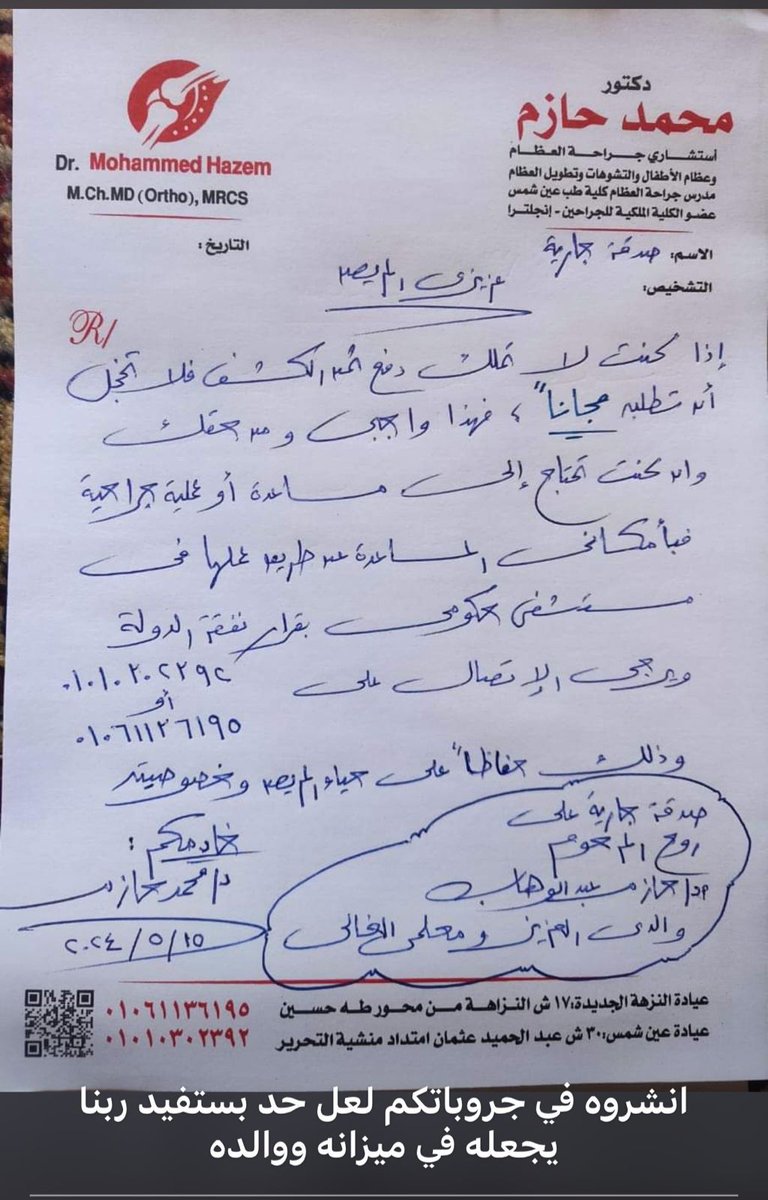 دكتور
محمد حازم
أستشاري جراحة العظام
وعظام الأطفال والتشوهات وتطويل العظام
مدرس جراحة العظام كلية طب عين شمس
عضو الكلية الملكية للجراحين - إنجلترا
Dr. Mohammed Hazem
M.Ch.MD (Ortho), MRCS
الاسم: صدقة جارية
التاريخ:
التشخيص:
عزيزى المريض
R/
إذا كنت لا تملك دفع ثمن الكشف فلا تخجل
أن تطلبه مجاناً ، فهذا واجبى ومن حقك
وان كنت تحتاج إلى مساعدة أو عملية جراحية
فبأمكانى المساعدة عن طريق عملها فى
مستشفى حكومى بقرار نفقة الدولة
ويرجى الإتصال على ٠١٠١٠٣٠٢٣٩٢
أو
٠١٠٦١١٣٦١٩٥
وذلك حفاظاً على حياء المريض وخصوصيته
صدقة جارية على
روح المرحوم
ا.د/ حازم عبد الوهاب
والدى العزيز ومعلمى الغالى
خادمكم :
د/ محمد حازم
٢٠٢٤/٥/١٥
عيادة النزهة الجديدة: ١٧ ش النزاهة من محور طه حسين ٠١٠٦١١٣٦١٩٥
عيادة عين شمس: ٣٠ ش عبد الحميد عثمان امتداد منشية التحرير ٠١٠١٠٣٠٢٣٩٢
انشروه في جروباتكم لعل حد بستفيد ربنا
يجعله في ميزانه ووالده